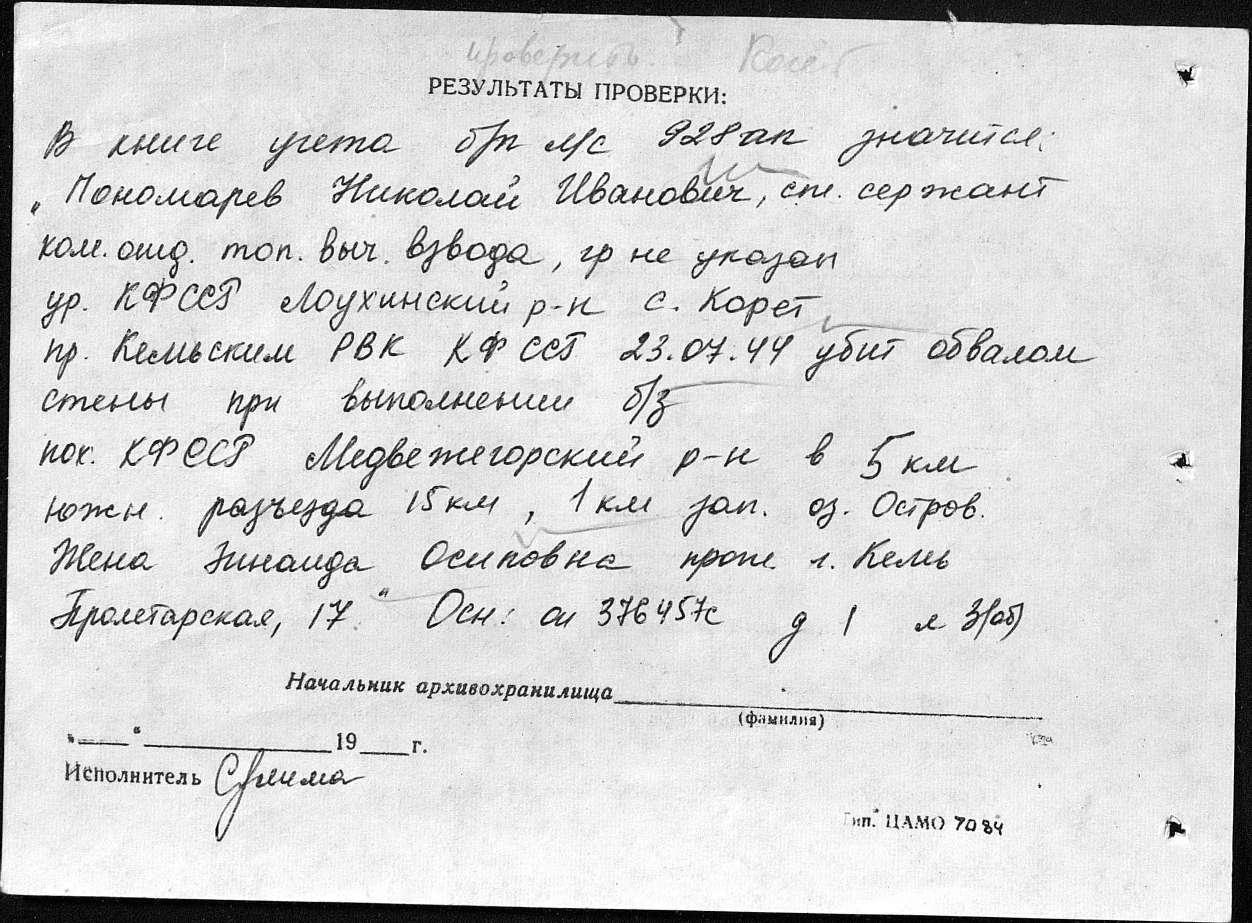 проверить.
РЕЗУЛЬТАТЫ ПРОВЕРКИ:
В книге учета б/п л/с 928 ап значится:
„Пономарев Николай Иванович, ст. сержант
ком. отд. топ. выч. взвода, гр не указан
ур. КФССР Лоухинский р-н с. Корет
пр. Кемьским РВК КФССР 23.07.44 убит обвалом
стены при выполнении б/з
пох. КФССР Медвежегорский р-н в 5 км
южн. разъезда 15 км, 1 км зап. оз. Остров.
Жена Зинаида Осиповна прож г. Кемь
Пролетарская, 17." Осн: оп 376457с д 1 л 3(об)
Начальник архивохранилища
(фамилия)
„ “ 19 г.
Исполнитель
Тип. ЦАМО 7084